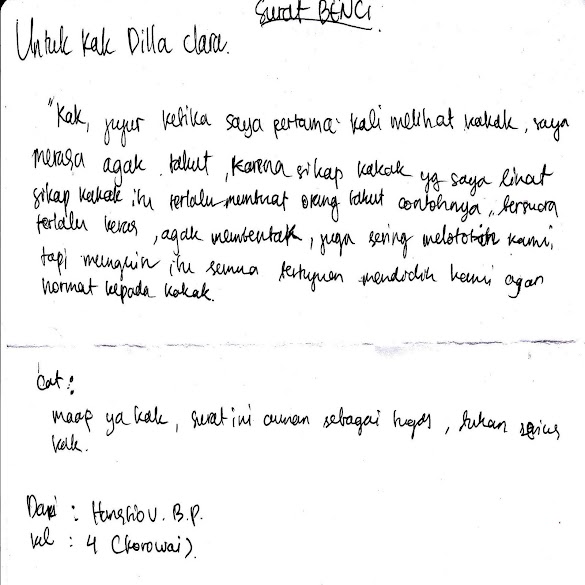 Surat BENCI
Untuk Kak Dilla clara.
"Kak, jujur ketika saya pertama kali melihat kakak, saya
merasa agak takut, karena sikap kakak yg saya lihat
sikap kakak itu terlalu membuat orang takut contohnya, bersuara
terlalu keras, agak membentak, juga sering melototin kami,
tapi mungkin itu semua bertujuan mendidik kami agar
hormat kepada kakak.
Cat :
maap ya kak, surat ini cuman sebagai tugas, bukan serius
kak.
Dari : V. B.P.
kel : 4 (korowai)